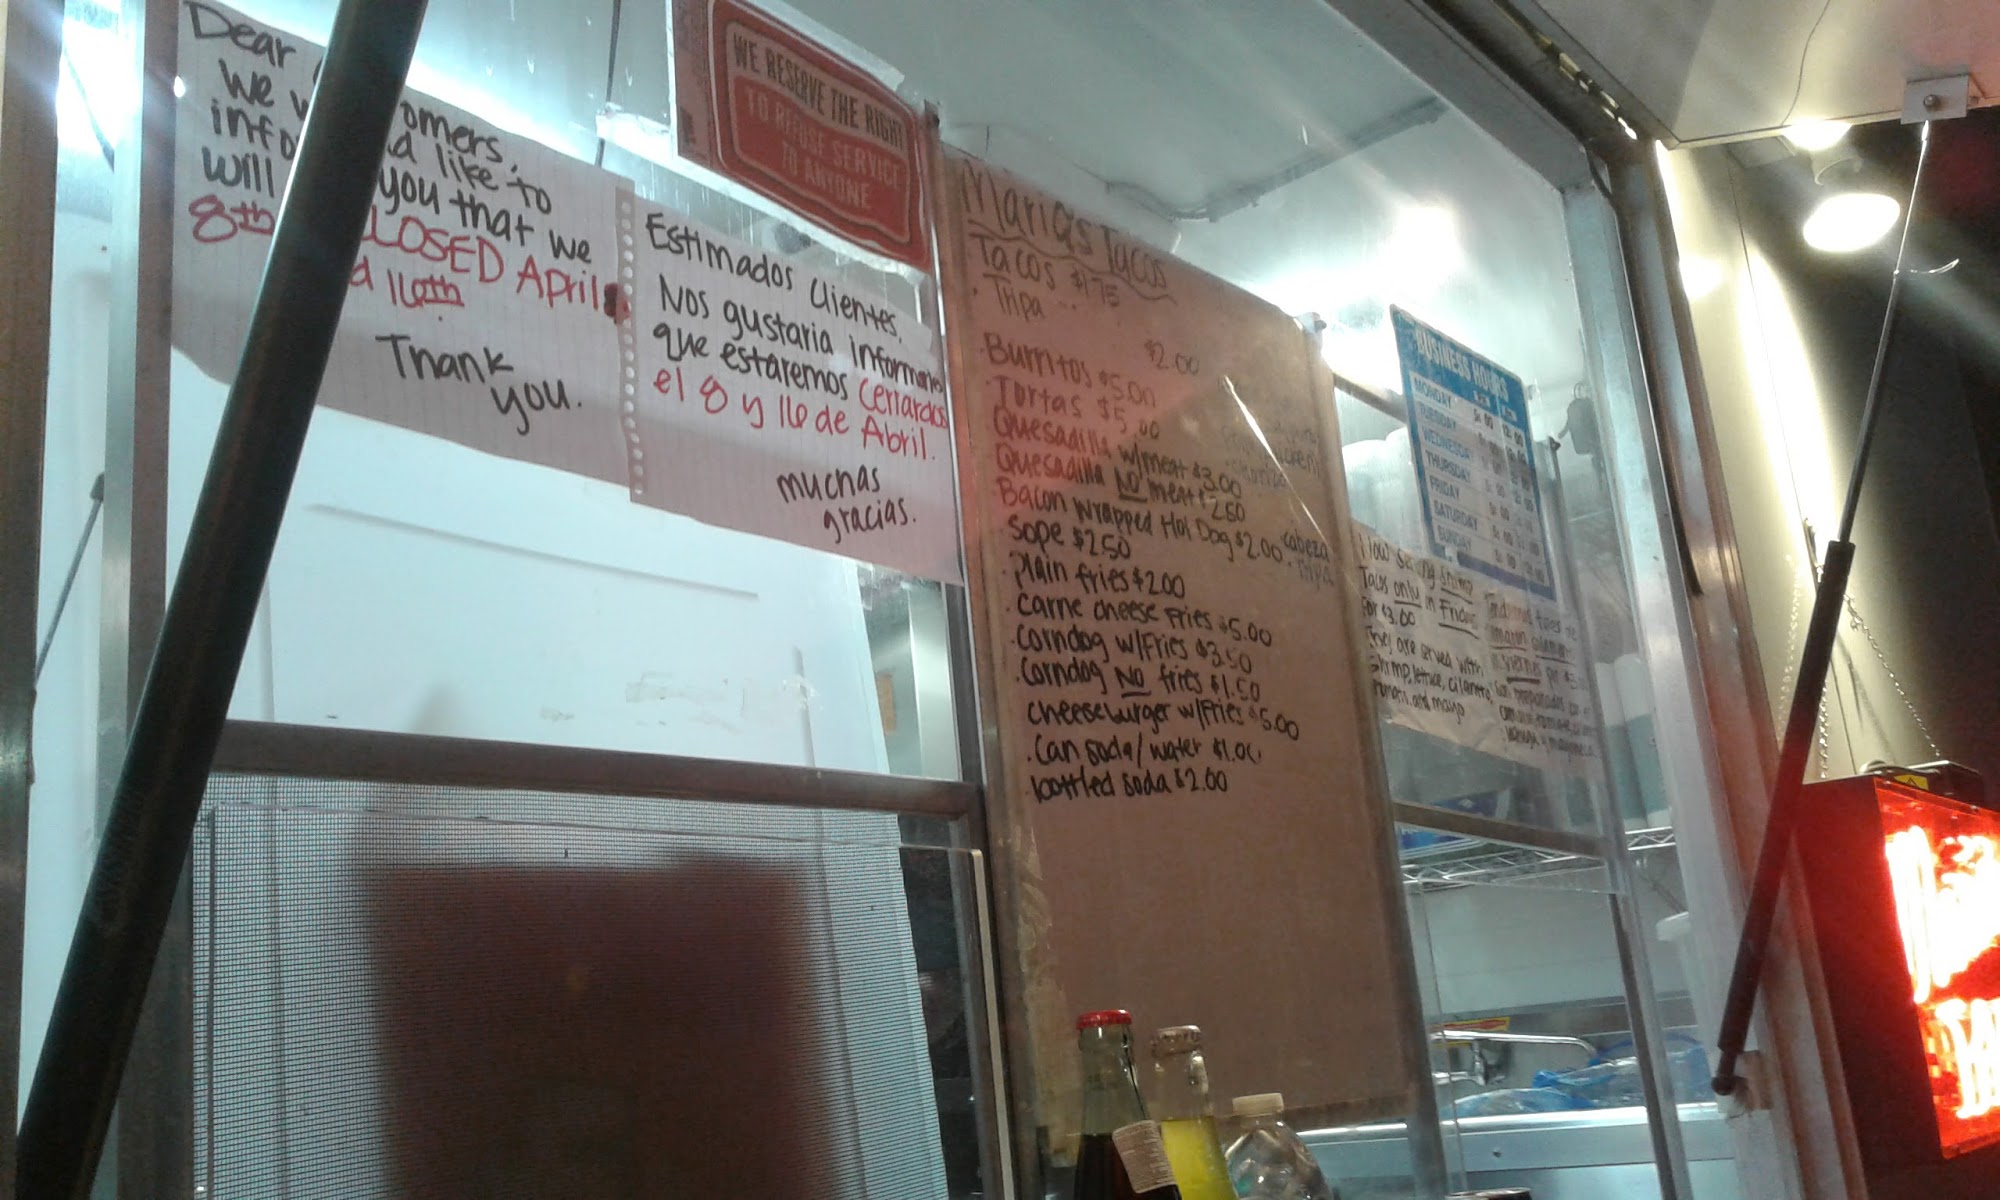 Dear omers,
We like to
info you that we
will CLOSED April
8th 16th
Thank
you.
WE RESERVE THE RIGHT
TO REFUSE SERVICE
TO ANYONE
Estimados clientes,
Nos gustaria informarles
que estaremos cerrardos
el 8 y 16 de Abril.
muchas
gracias.
Maria's Tacos
Tacos $1.75
Tripa $2.00
Burritos $5.00
Tortas $5.00
Quesadilla w/meat $3.00
Quesadilla NO meat $2.50
Bacon wrapped Hot Dog $2.00
Sope $2.50
plain fries $2.00
carne cheese Fries $5.00
corndog w/Fries $3.50
corndog NO fries $1.50
cheeseburger w/Fries $5.00
Can soda/water $1.00
bottled soda $2.00
cabeza
Tripa
BUSINESS HOURS
MONDAY
TUESDAY
WEDNESDAY
THURSDAY
FRIDAY
SATURDAY
SUNDAY
Now Serving Shrimp
Tacos only on Fridays
For $3.00
They are served with
shrimp, lettuce, cilantro,
tomato, and mayo